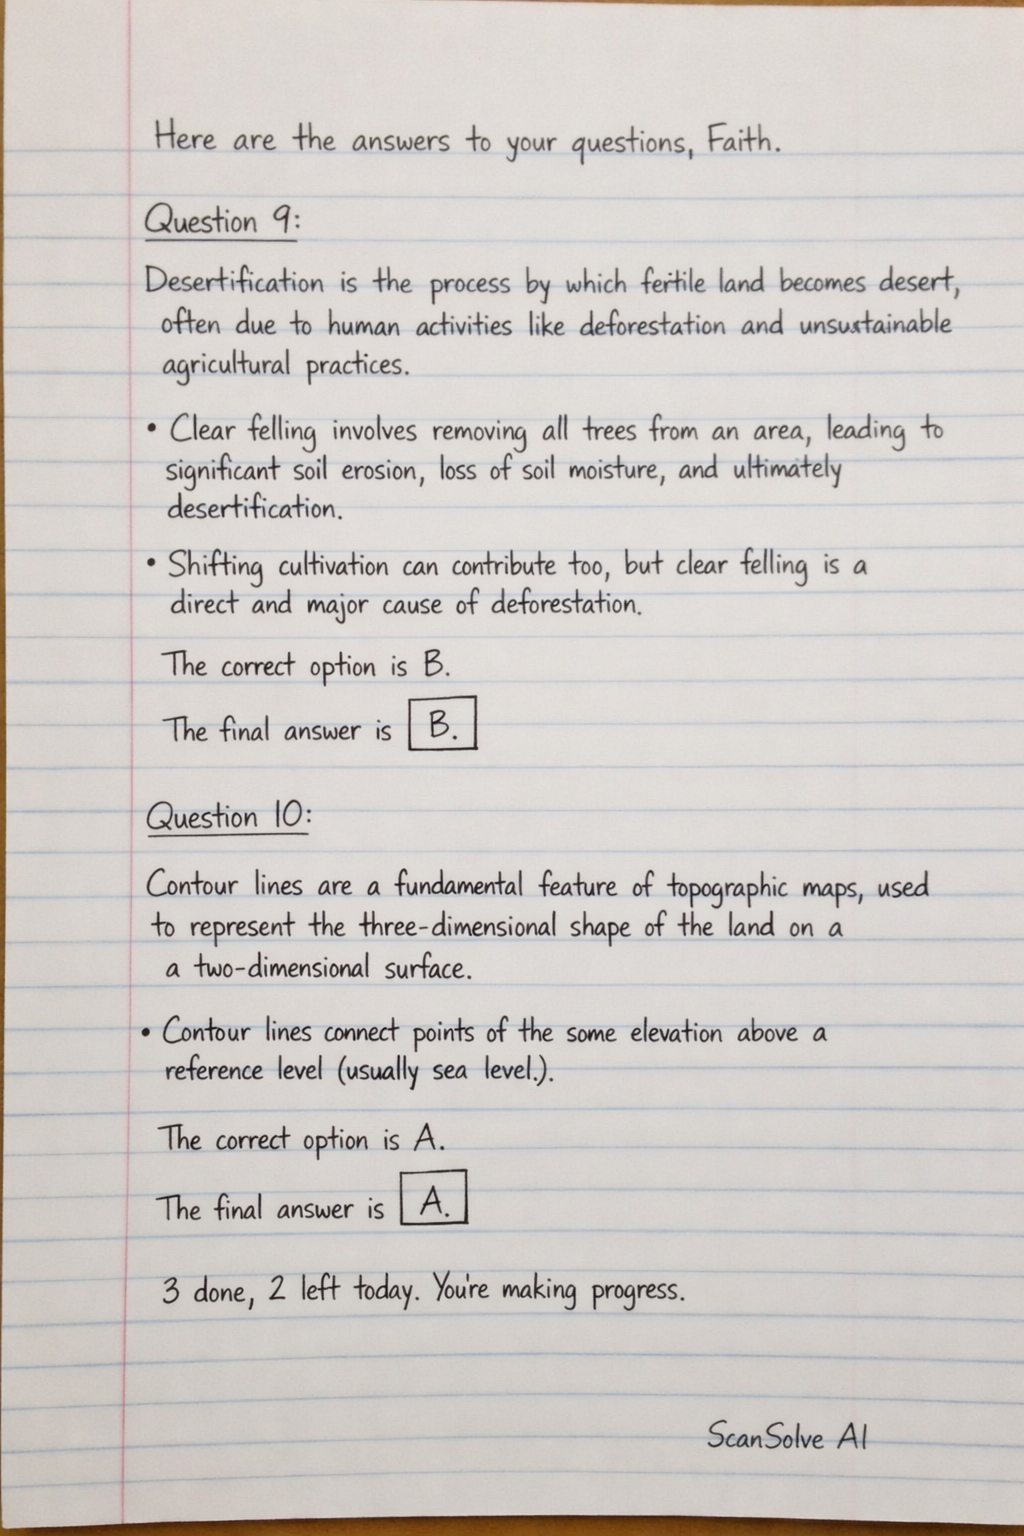 Here are the answers to your questions, Faith.
Question 9:
Desertification is the process by which fertile land becomes desert,
often due to human activities like deforestation and unsustainable
agricultural practices.
• Clear felling involves removing all trees from an area, leading to
significant soil erosion, loss of soil moisture, and ultimately
desertification.
• Shifting cultivation can contribute too, but clear felling is a
direct and major cause of deforestation.
The correct option is B.
The final answer is B.
Question 10:
Contour lines are a fundamental feature of topographic maps, used
to represent the three-dimensional shape of the land on a
a two-dimensional surface.
• Contour lines connect points of the some elevation above a
reference level (usually sea level.).
The correct option is A.
The final answer is A.
3 done, 2 left today. You're making progress.
ScanSolve AI